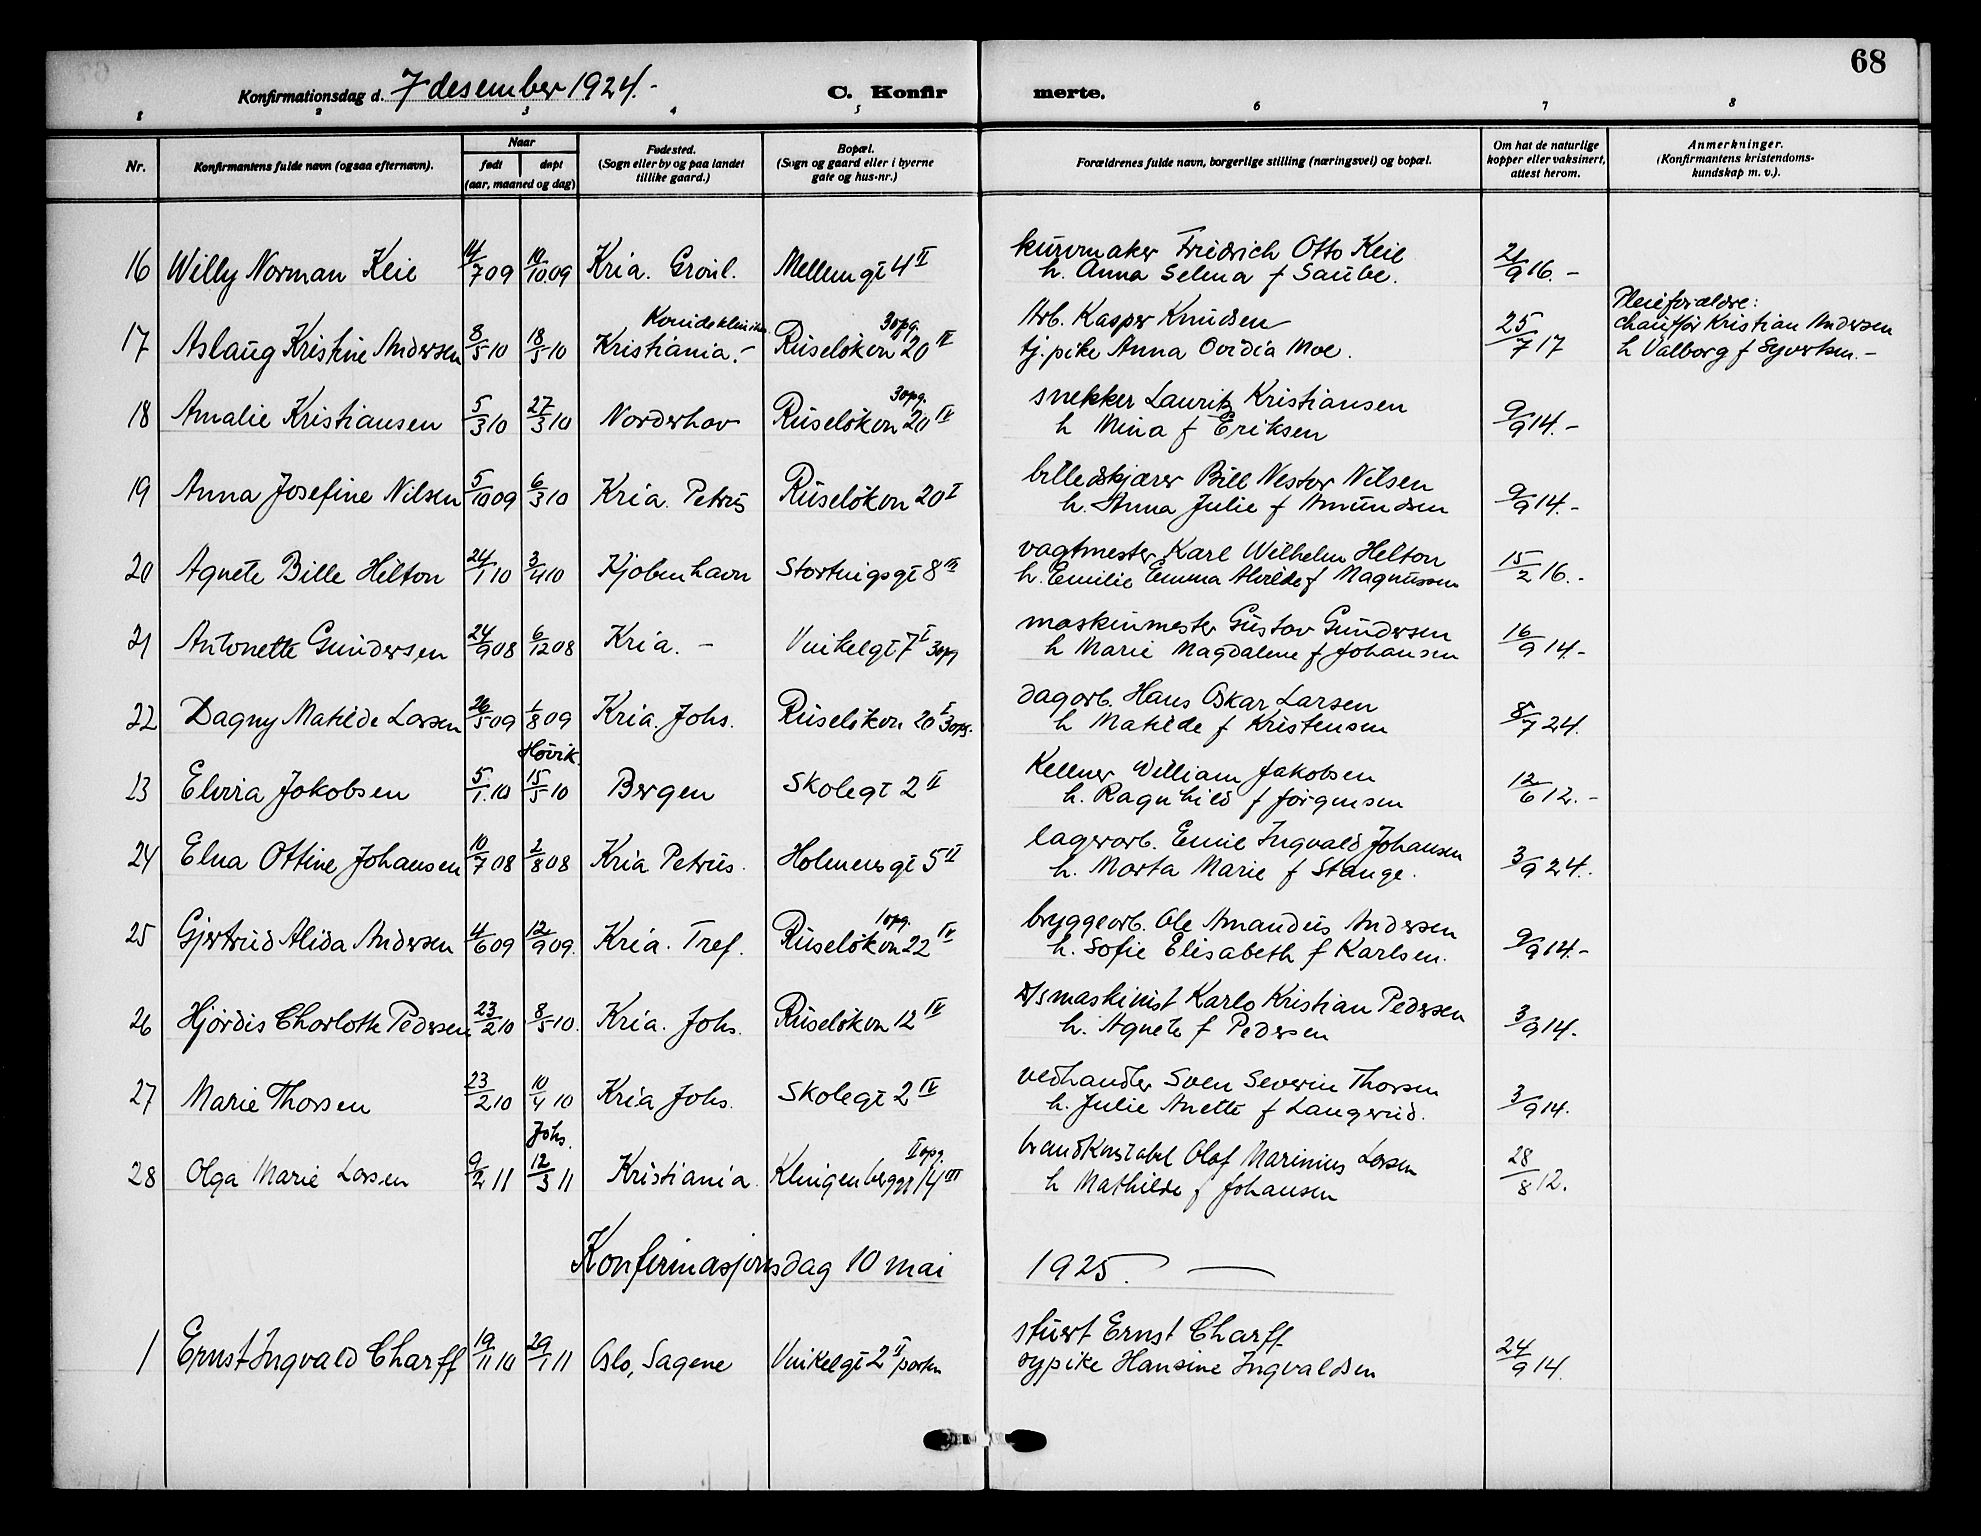 68
Konfirmationsdag d. 7 desember 1924.-
C. Konfir merte.
1 2 3 4 5 6 7 8
Nr.
Konfirmantens fulde navn (ogsaa efternavn).
Naar
født døpt
(aar, maaned og dag)
Fødested.
(Sogn eller by og paa landet
tillike gaard.)
Bopæl.
(Sogn og gaard eller i byerne
gate og hus-nr.)
Forældrenes fulde navn, borgerlige stilling (næringsvei) og bopæl.
Om hat de naturlige
kopper eller vaksinert,
attest herom.
Anmerkninger.
(Konfirmantens kristendoms-
kundskap m. v.).
16 Willy Norman Keil 14/7 09 10/10.09 Kria. Grønl. Mellemgt 4 II
kurvmaker Fridrich Otto Keil
h. Anna Selma f Saube.
21/9 16.-
17 Aslaug Kristine Andersen 8/5 10 18/5 10 Kristiania.- Ruseløkvn 20 IV
3opg.
Arb. Kasper Knudsen
tj.pike Anna Ovidia Moe.
25/7 17
Pleieforældre:
chauffør Kristian Andersen
h Valborg f Syvertsen.-
18 Amalie Kristiansen 5/3 10 27/3 10 Norderhov Ruseløkvn 20 IV
3opg.
snekker Lauritz Kristiansen
h Mina f Eriksen
9/9 14.-
19 Anna Josefine Nilsen 5/10 09 6/3 10 Kria. Petrus Ruseløkvn 20 I
billedskjærer Bill Nestor Nilsen
h. Anna Julie f Amundsen
9/9 14.-
20 Agnete Bille Helton 24/1 10 3/4 10 Kjøbenhavn Stortingsgt 8 III
vagtmester Karl Wilhelm Helton
h. Emilie Emma Alvilde f Magnussen
15/2 16.-
21 Antonette Gundersen 24/9 08 6/12 08 Kria. - Vinkelgt 7 I 3opg
maskinmester Gustav Gundersen
h Marie Magdalene f Johansen
16/9 14.-
22 Dagny Matilde Larsen 26/5 09 1/8 09 Kria. Johs. Ruseløkvn 20 I 3opg.
dagarb. Hans Oskar Larsen
h Matilde f Kristensen
8/7 24.
Høvik.
23 Elvira Jakobsen 5/1.10 15/5 10 Bergen Skolegt 2 II
Kellner William Jakobsen
h. Ragnhild f Jørgensen
12/6 12.-
24 Elna Ottine Johansen 10/7 08 2/8 08 Kria Petrus. Holmensgt 5 II
lagerarb. Emil Ingvald Johansen
h. Marta Marie f Stange.
3/9 24.
25 Gjertrud Alida Andersen 4/6 09 12/9 09. Kria. Tref. Ruseløkvn 22 IV
1opg.
bryggearb. Ole Amandus Andersen
h. Sofie Elisabeth f Karlsen.
9/9 14.-
26 Hjørdis Charlotte Pedersen 23/2 10 8/5 10. Kria. Johs. Ruseløkvn 12 IV
maskinist Karlo Kristian Pedersen
h. Agnete f Pedersen
3/9 14.
27 Marie Thorsen 23/2 10 10/4 10 Kria Johs. Skolegt 2 IV
vedhandler Sven Severin Thorsen
h. Julie Anette f Langerud.
3/9 14.
Johs.
28 Olga Marie Larsen 9/2 11 12/3 11 Kristiania. Klingenberggt 14 III
II opg.
brandkonstabel Olaf Marinius Larsen
h Mathilde f Johansen
28/8 12.
Konfirmasjonsdag 10 mai 1925.
1 Ernst Ingvald Charff 19/11 10 29/1 11 Oslo, Sagene Vinkelgt 2 II porten
stuert Ernst Charff
sypike Hansine Ingvaldsen
24/9 14.